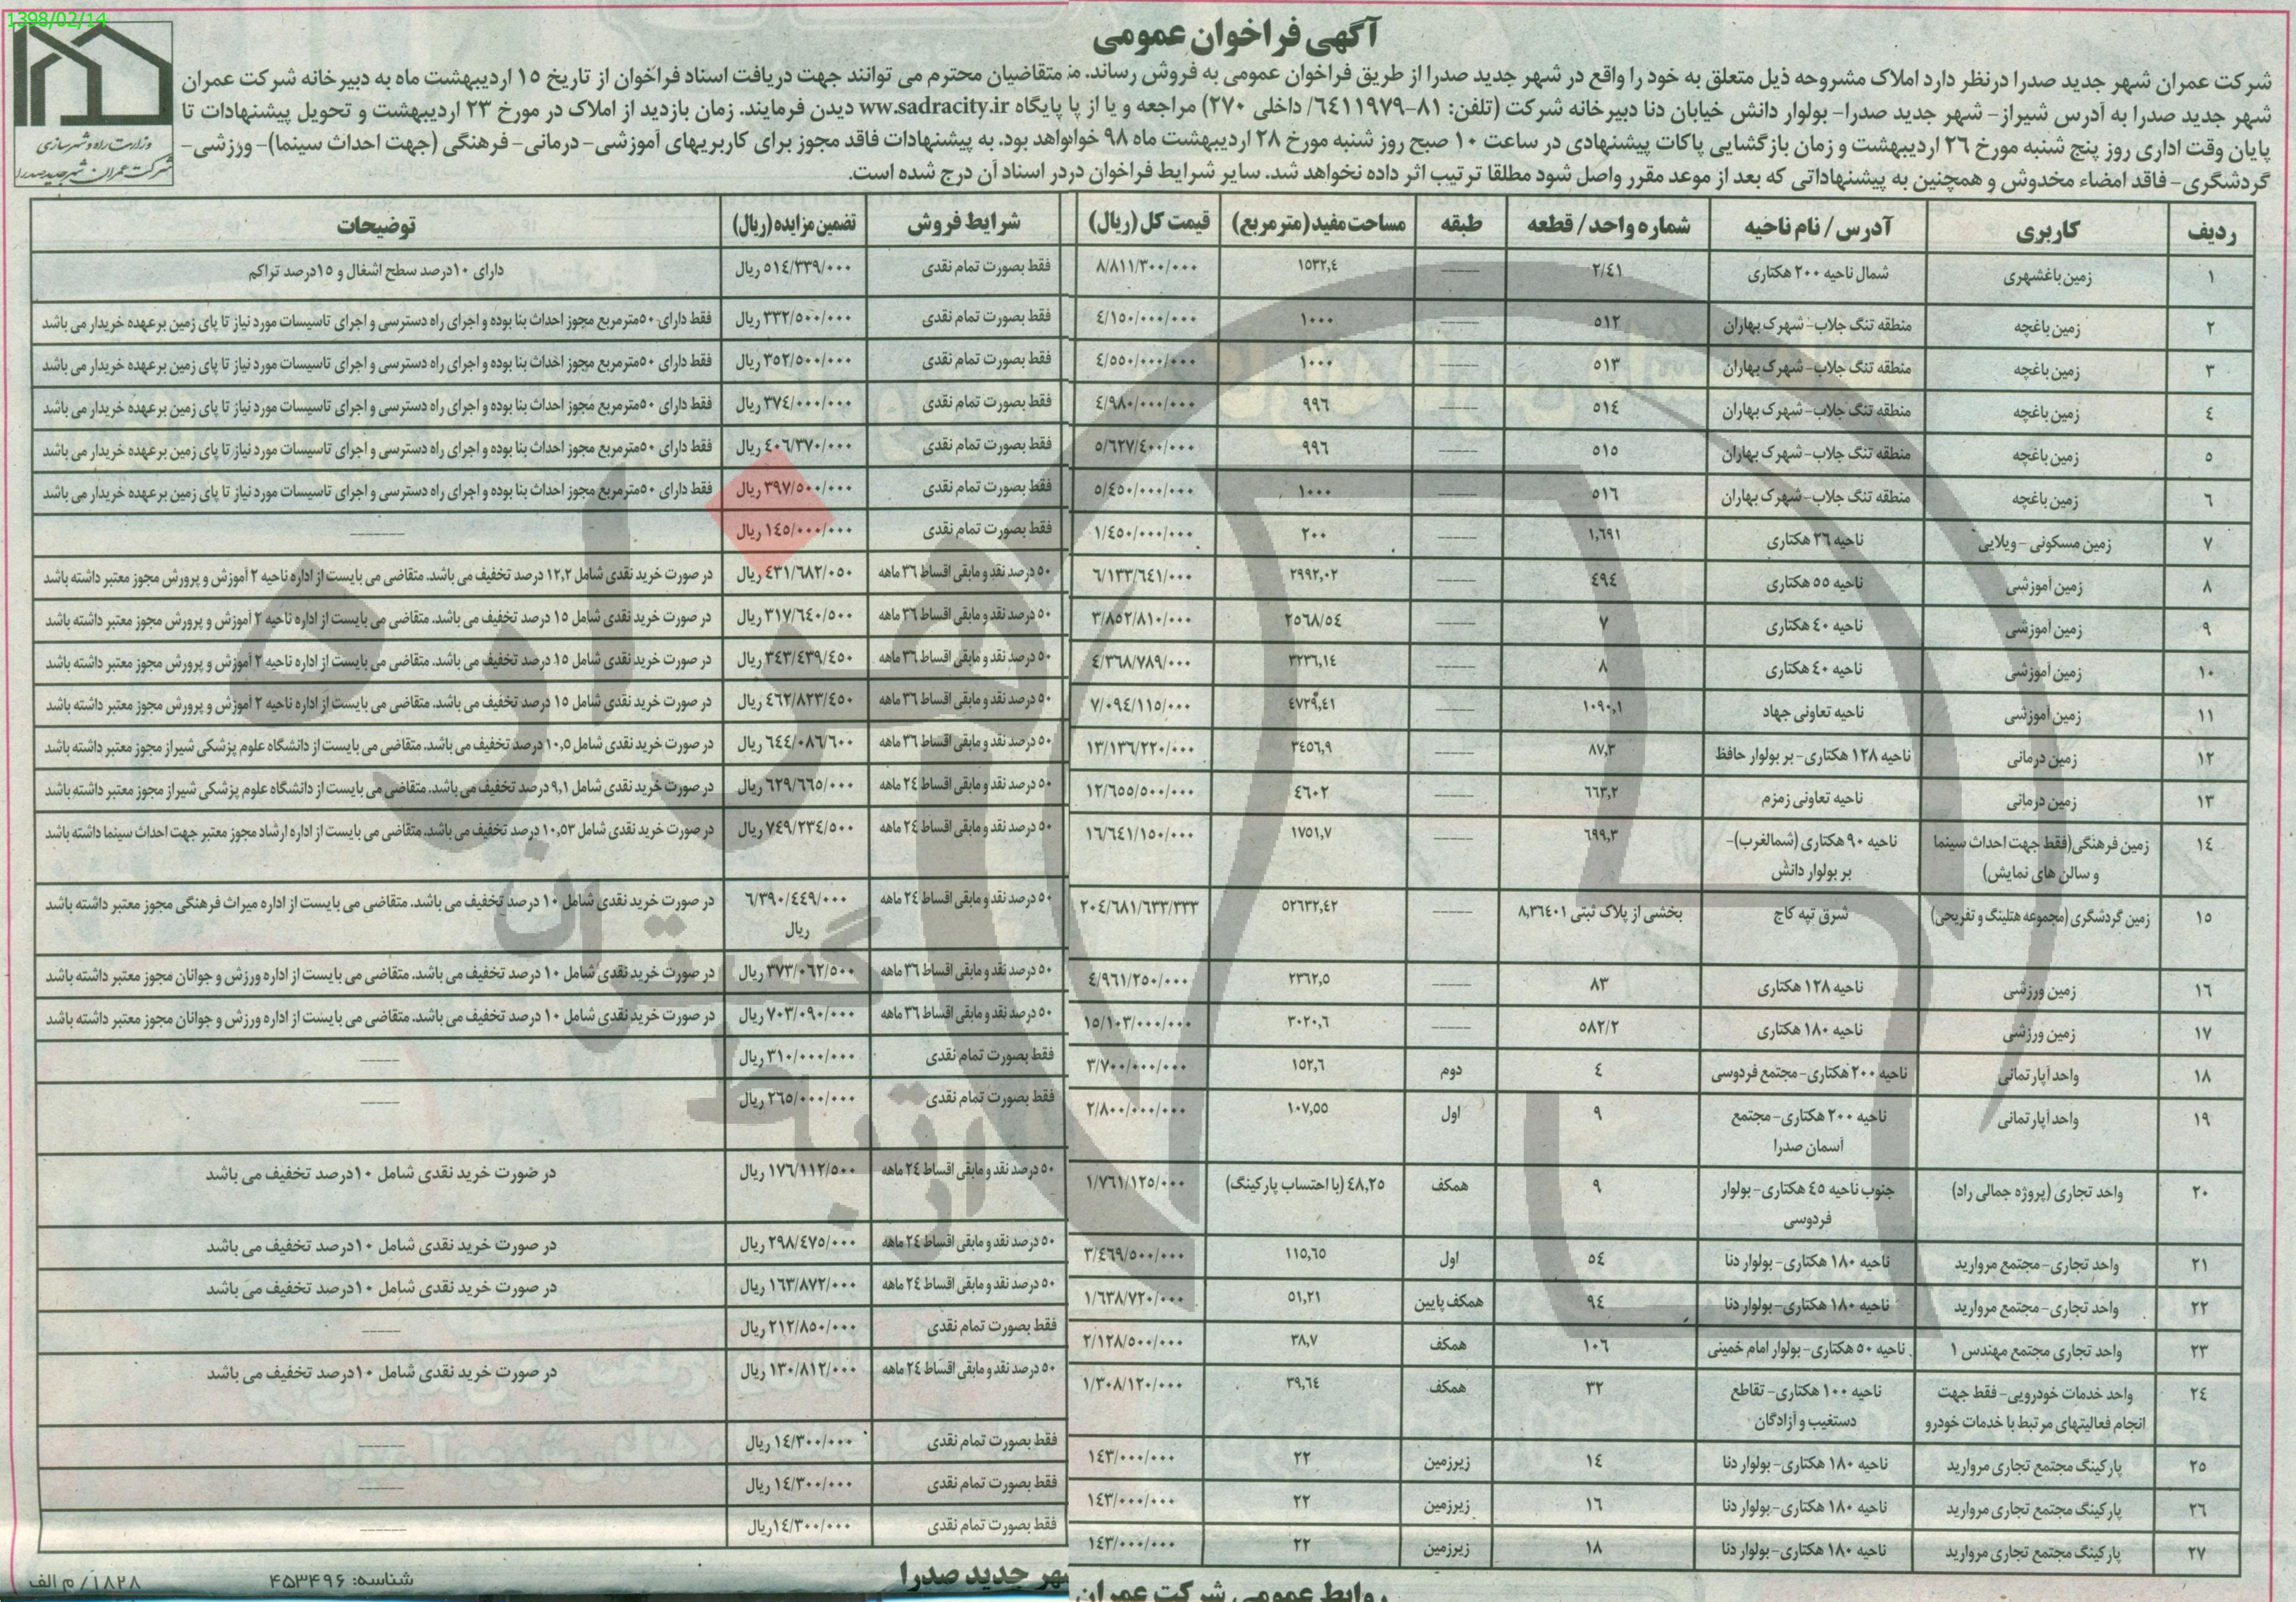 1398/02/14
آگهی فراخوان عمومی
شرکت عمران شهر جدید صدرا درنظر دارد املاک مشروحه ذیل متعلق به خود را واقع در شهر جدید صدرا از طریق فراخوان عمومی به فروش رساند. متقاضیان محترم می توانند جهت دریافت اسناد فراخوان از تاریخ ۱۵ اردیبهشت ماه به دبیرخانه شرکت عمران
شهر جدید صدرا به آدرس شیراز- شهر جدید صدرا- بولوار دانش خیابان دنا دبیرخانه شرکت (تلفن: ۸۱-۶۴۱۱۹۷۹/ داخلی ۲۷۰) مراجعه و یا از پا پایگاه ww.sadracity.ir دیدن فرمایند. زمان بازدید از املاک در مورخ ۲۳ اردیبهشت و تحویل پیشنهادات تا
پایان وقت اداری روز پنج شنبه مورخ ۲۶ اردیبهشت و زمان بازگشایی پاکات پیشنهادی در ساعت ۱۰ صبح روز شنبه مورخ ۲۸ اردیبهشت ماه ۹۸ خواهد بود. به پیشنهادات فاقد مجوز برای کاربریهای آموزشی- درمانی- فرهنگی (جهت احداث سینما)- ورزشی-
گردشگری- فاقد امضاء مخدوش و همچنین به پیشنهاداتی که بعد از موعد مقرر واصل شود مطلقا ترتیب اثر داده نخواهد شد. سایر شرایط فراخوان دردر اسناد آن درج شده است.
وزارت راه و شهرسازی
شرکت عمران شهر جدید صدرا
ردیف کاربری آدرس/ نام ناحیه شماره واحد/ قطعه طبقه مساحت مفید (مترمربع) قیمت کل (ریال) شرایط فروش تضمین مزایده (ریال) توضیحات
۱ زمین باغشهری شمال ناحیه ۲۰۰ هکتاری ۲/۴۱ ۱۵۳۲,۴ ۸/۸۱۱/۳۰۰/۰۰۰ فقط بصورت تمام نقدی ۵۱۴/۳۳۹/۰۰۰ ریال دارای ۱۰درصد سطح اشغال و ۱۵درصد تراکم
۲ زمین باغچه منطقه تنگ جلاب- شهرک بهاران ۵۱۲ ۱۰۰۰ ۴/۱۵۰/۰۰۰/۰۰۰ فقط بصورت تمام نقدی ۳۳۲/۵۰۰/۰۰۰ ریال فقط دارای ۵۰مترمربع مجوز احداث بنا بوده و اجرای راه دسترسی و اجرای تاسیسات مورد نیاز تا پای زمین برعهده خریدار می باشد
۳ زمین باغچه منطقه تنگ جلاب- شهرک بهاران ۵۱۳ ۱۰۰۰ ۴/۵۵۰/۰۰۰/۰۰۰ فقط بصورت تمام نقدی ۳۵۲/۵۰۰/۰۰۰ ریال فقط دارای ۵۰مترمربع مجوز احداث بنا بوده و اجرای راه دسترسی و اجرای تاسیسات مورد نیاز تا پای زمین برعهده خریدار می باشد
۴ زمین باغچه منطقه تنگ جلاب- شهرک بهاران ۵۱۴ ۹۹۶ ۴/۹۸۰/۰۰۰/۰۰۰ فقط بصورت تمام نقدی ۳۷۴/۰۰۰/۰۰۰ ریال فقط دارای ۵۰مترمربع مجوز احداث بنا بوده و اجرای راه دسترسی و اجرای تاسیسات مورد نیاز تا پای زمین برعهده خریدار می باشد
۵ زمین باغچه منطقه تنگ جلاب- شهرک بهاران ۵۱۵ ۹۹۶ ۵/۶۲۷/۴۰۰/۰۰۰ فقط بصورت تمام نقدی ۴۰۶/۳۷۰/۰۰۰ ریال فقط دارای ۵۰مترمربع مجوز احداث بنا بوده و اجرای راه دسترسی و اجرای تاسیسات مورد نیاز تا پای زمین برعهده خریدار می باشد
۶ زمین باغچه منطقه تنگ جلاب- شهرک بهاران ۵۱۶ ۱۰۰۰ ۵/۴۵۰/۰۰۰/۰۰۰ فقط بصورت تمام نقدی ۳۹۷/۵۰۰/۰۰۰ ریال فقط دارای ۵۰مترمربع مجوز احداث بنا بوده و اجرای راه دسترسی و اجرای تاسیسات مورد نیاز تا پای زمین برعهده خریدار می باشد
۷ زمین مسکونی-ویلایی ناحیه ۳۶ هکتاری ۱,۶۹۱ ۲۰۰ ۱/۴۵۰/۰۰۰/۰۰۰ فقط بصورت تمام نقدی ۱۴۵/۰۰۰/۰۰۰ ریال
۸ زمین آموزشی ناحیه ۵۵ هکتاری ۴۹۴ ۲۹۹۲,۰۲ ۶/۱۳۳/۶۴۱/۰۰۰ ۵۰ درصد نقد و مابقی اقساط ۳۶ ماهه ۴۳۱/۶۸۲/۰۵۰ ریال در صورت خرید نقدی شامل ۱۲,۲ درصد تخفیف می باشد. متقاضی می بایست از اداره ناحیه ۲ آموزش و پرورش مجوز معتبر داشته باشد
۹ زمین آموزشی ناحیه ۴۰ هکتاری ۷ ۲۵۶۸/۵۴ ۳/۸۵۲/۸۱۰/۰۰۰ ۵۰ درصد نقد و مابقی اقساط ۳۶ ماهه ۳۱۷/۶۴۰/۵۰۰ ریال در صورت خرید نقدی شامل ۱۵ درصد تخفیف می باشد. متقاضی می بایست از اداره ناحیه ۲ آموزش و پرورش مجوز معتبر داشته باشد
۱۰ زمین آموزشی ناحیه ۴۰ هکتاری ۸ ۳۲۳۶,۱۴ ۴/۳۶۸/۷۸۹/۰۰۰ ۵۰ درصد نقد و مابقی اقساط ۳۶ ماهه ۳۴۳/۴۳۹/۴۵۰ ریال در صورت خرید نقدی شامل ۱۵ درصد تخفیف می باشد. متقاضی می بایست از اداره ناحیه ۲ آموزش و پرورش مجوز معتبر داشته باشد
۱۱ زمین آموزشی ناحیه تعاونی جهاد ۱۰۹۰,۱ ۴۷۲۹,۴۱ ۷/۰۹۴/۱۱۵/۰۰۰ ۵۰ درصد نقد و مابقی اقساط ۳۶ ماهه ۴۶۲/۸۲۳/۴۵۰ ریال در صورت خرید نقدی شامل ۱۵ درصد تخفیف می باشد. متقاضی می بایست از اداره ناحیه ۲ آموزش و پرورش مجوز معتبر داشته باشد
۱۲ زمین درمانی ناحیه ۱۲۸ هکتاری- بر بولوار حافظ ۸۷,۳ ۳۴۵۶,۹ ۱۳/۱۳۶/۲۲۰/۰۰۰ ۵۰ درصد نقد و مابقی اقساط ۳۶ ماهه ۶۴۴/۰۸۶/۶۰۰ ریال در صورت خرید نقدی شامل ۱۰,۵ درصد تخفیف می باشد. متقاضی می بایست از دانشگاه علوم پزشکی شیراز مجوز معتبر داشته باشد
۱۳ زمین درمانی ناحیه تعاونی زمزم ۶۶۳,۲ ۴۶۰۲ ۱۲/۶۵۵/۵۰۰/۰۰۰ ۵۰ درصد نقد و مابقی اقساط ۲۴ ماهه ۶۲۹/۶۶۵/۰۰۰ ریال در صورت خرید نقدی شامل ۹,۱ درصد تخفیف می باشد. متقاضی می بایست از دانشگاه علوم پزشکی شیراز مجوز معتبر داشته باشد
۱۴ زمین فرهنگی(فقط جهت احداث سینما ناحیه ۹۰ هکتاری (شمالغرب)- ۶۹۹,۳ ۱۷۵۱,۷ ۱۶/۶۴۱/۱۵۰/۰۰۰ ۵۰ درصد نقد و مابقی اقساط ۲۴ ماهه ۷۴۹/۲۳۴/۵۰۰ ریال در صورت خرید نقدی شامل ۱۰,۵۳ درصد تخفیف می باشد. متقاضی می بایست از اداره ارشاد مجوز معتبر جهت احداث سینما داشته باشد
و سالن های نمایش) بر بولوار دانش
۱۵ زمین گردشگری (مجموعه هتلینگ و تفریحی) شرق تپه کاج بخشی از پلاک ثبتی ۸,۳۶۴۰۱ ۵۲۶۳۲,۴۲ ۲۰۴/۶۸۱/۶۳۳/۳۳۳ ۵۰ درصد نقد و مابقی اقساط ۲۴ ماهه ۶/۳۹۰/۴۴۹/۰۰۰ در صورت خرید نقدی شامل ۱۰ درصد تخفیف می باشد. متقاضی می بایست از اداره میراث فرهنگی مجوز معتبر داشته باشد
ریال
۱۶ زمین ورزشی ناحیه ۱۲۸ هکتاری ۸۳ ۲۳۶۲,۵ ۴/۹۶۱/۲۵۰/۰۰۰ ۵۰ درصد نقد و مابقی اقساط ۳۶ ماهه ۳۷۳/۰۶۲/۵۰۰ ریال در صورت خرید نقدی شامل ۱۰ درصد تخفیف می باشد. متقاضی می بایست از اداره ورزش و جوانان مجوز معتبر داشته باشد
۱۷ زمین ورزشی ناحیه ۱۸۰ هکتاری ۵۸۲/۲ ۳۰۲۰,۶ ۱۵/۱۰۳/۰۰۰/۰۰۰ ۵۰ درصد نقد و مابقی اقساط ۳۶ ماهه ۷۰۳/۰۹۰/۰۰۰ ریال در صورت خرید نقدی شامل ۱۰ درصد تخفیف می باشد. متقاضی می بایست از اداره ورزش و جوانان مجوز معتبر داشته باشد
۱۸ واحد آپارتمانی ناحیه ۲۰۰ هکتاری- مجتمع فردوسی ۴ دوم ۱۵۲,۶ ۳/۷۰۰/۰۰۰/۰۰۰ فقط بصورت تمام نقدی ۳۱۰/۰۰۰/۰۰۰ ریال
۱۹ واحد آپارتمانی ناحیه ۲۰۰ هکتاری- مجتمع ۹ اول ۱۰۷,۵۵ ۲/۸۰۰/۰۰۰/۰۰۰ فقط بصورت تمام نقدی ۲۶۵/۰۰۰/۰۰۰ ریال
آسمان صدرا
۲۰ واحد تجاری (پروژه جمالی راد) جنوب ناحیه ۴۵ هکتاری- بولوار ۹ همکف ۴۸,۲۵ (با احتساب پارکینگ) ۱/۷۶۱/۱۲۵/۰۰۰ ۵۰ درصد نقد و مابقی اقساط ۲۴ ماهه ۱۷۶/۱۱۲/۵۰۰ ریال در صورت خرید نقدی شامل ۱۰درصد تخفیف می باشد
فردوسی
۲۱ واحد تجاری- مجتمع مروارید ناحیه ۱۸۰ هکتاری- بولوار دنا ۵۴ اول ۱۱۵,۶۵ ۳/۴۶۹/۵۰۰/۰۰۰ ۵۰ درصد نقد و مابقی اقساط ۲۴ ماهه ۲۹۸/۴۷۵/۰۰۰ ریال در صورت خرید نقدی شامل ۱۰درصد تخفیف می باشد
۲۲ واحد تجاری- مجتمع مروارید ناحیه ۱۸۰ هکتاری- بولوار دنا ۹۴ همکف پایین ۵۱,۲۱ ۱/۶۳۸/۷۲۰/۰۰۰ ۵۰ درصد نقد و مابقی اقساط ۲۴ ماهه ۱۶۳/۸۷۲/۰۰۰ ریال در صورت خرید نقدی شامل ۱۰درصد تخفیف می باشد
۲۳ واحد تجاری مجتمع مهندس ۱ ناحیه ۵۰ هکتاری- بولوار امام خمینی ۱۰۶ همکف ۳۸,۷ ۲/۱۲۸/۵۰۰/۰۰۰ فقط بصورت تمام نقدی ۲۱۲/۸۵۰/۰۰۰ ریال
۲۴ واحد خدمات خودرویی- فقط جهت ناحیه ۱۰۰ هکتاری- تقاطع ۳۲ همکف ۳۹,۶۴ ۱/۳۰۸/۱۲۰/۰۰۰ ۵۰ درصد نقد و مابقی اقساط ۲۴ ماهه ۱۳۰/۸۱۲/۰۰۰ ریال در صورت خرید نقدی شامل ۱۰درصد تخفیف می باشد
انجام فعالیتهای مرتبط با خدمات خودرو دستغیب و آزادگان
۲۵ پارکینگ مجتمع تجاری مروارید ناحیه ۱۸۰ هکتاری- بولوار دنا ۱۴ زیرزمین ۲۲ ۱۴۳/۰۰۰/۰۰۰ فقط بصورت تمام نقدی ۱۴/۳۰۰/۰۰۰ ریال
۲۶ پارکینگ مجتمع تجاری مروارید ناحیه ۱۸۰ هکتاری- بولوار دنا ۱۶ زیرزمین ۲۲ ۱۴۳/۰۰۰/۰۰۰ فقط بصورت تمام نقدی ۱۴/۳۰۰/۰۰۰ ریال
۲۷ پارکینگ مجتمع تجاری مروارید ناحیه ۱۸۰ هکتاری- بولوار دنا ۱۸ زیرزمین ۲۲ ۱۴۳/۰۰۰/۰۰۰ فقط بصورت تمام نقدی ۱۴/۳۰۰/۰۰۰ ریال
روابط عمومی شرکت عمران شهر جدید صدرا
شناسه: ۴۵۳۴۹۶
۱۸۲۸/ م الف